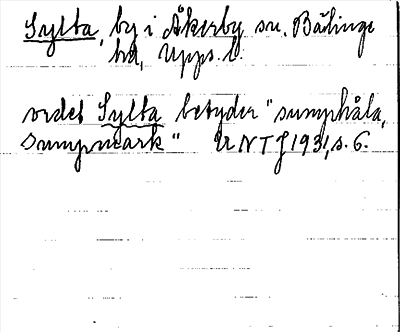 Sylta, by i Åkerby sn. Bälinge
hd, Upps. l.
ordet Sylta betyder "sumphåla,
sumpmark" UNTJ 1931, s. 6.